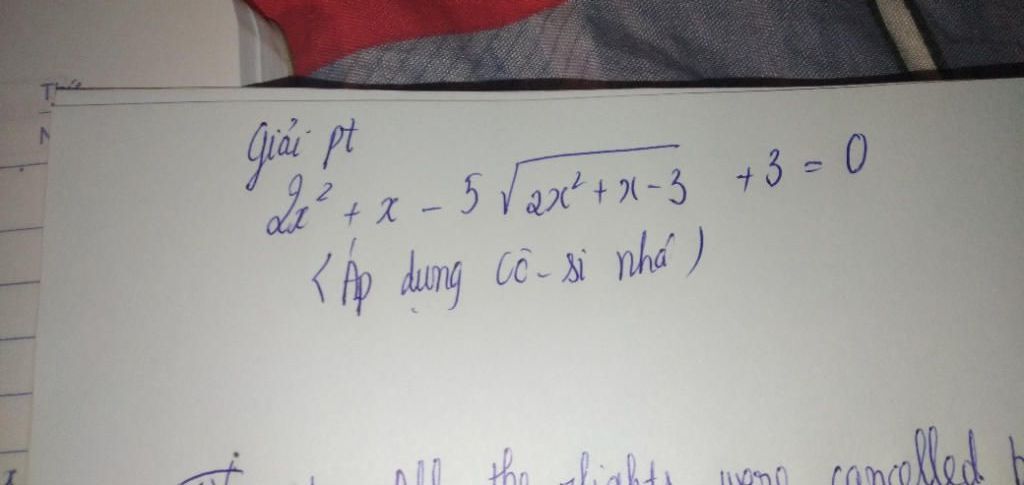 Giải pt
2x² + x - 5√(2x² + x - 3) + 3 = 0
(Áp dụng Cô-si nhá)
All the flights were cancelled